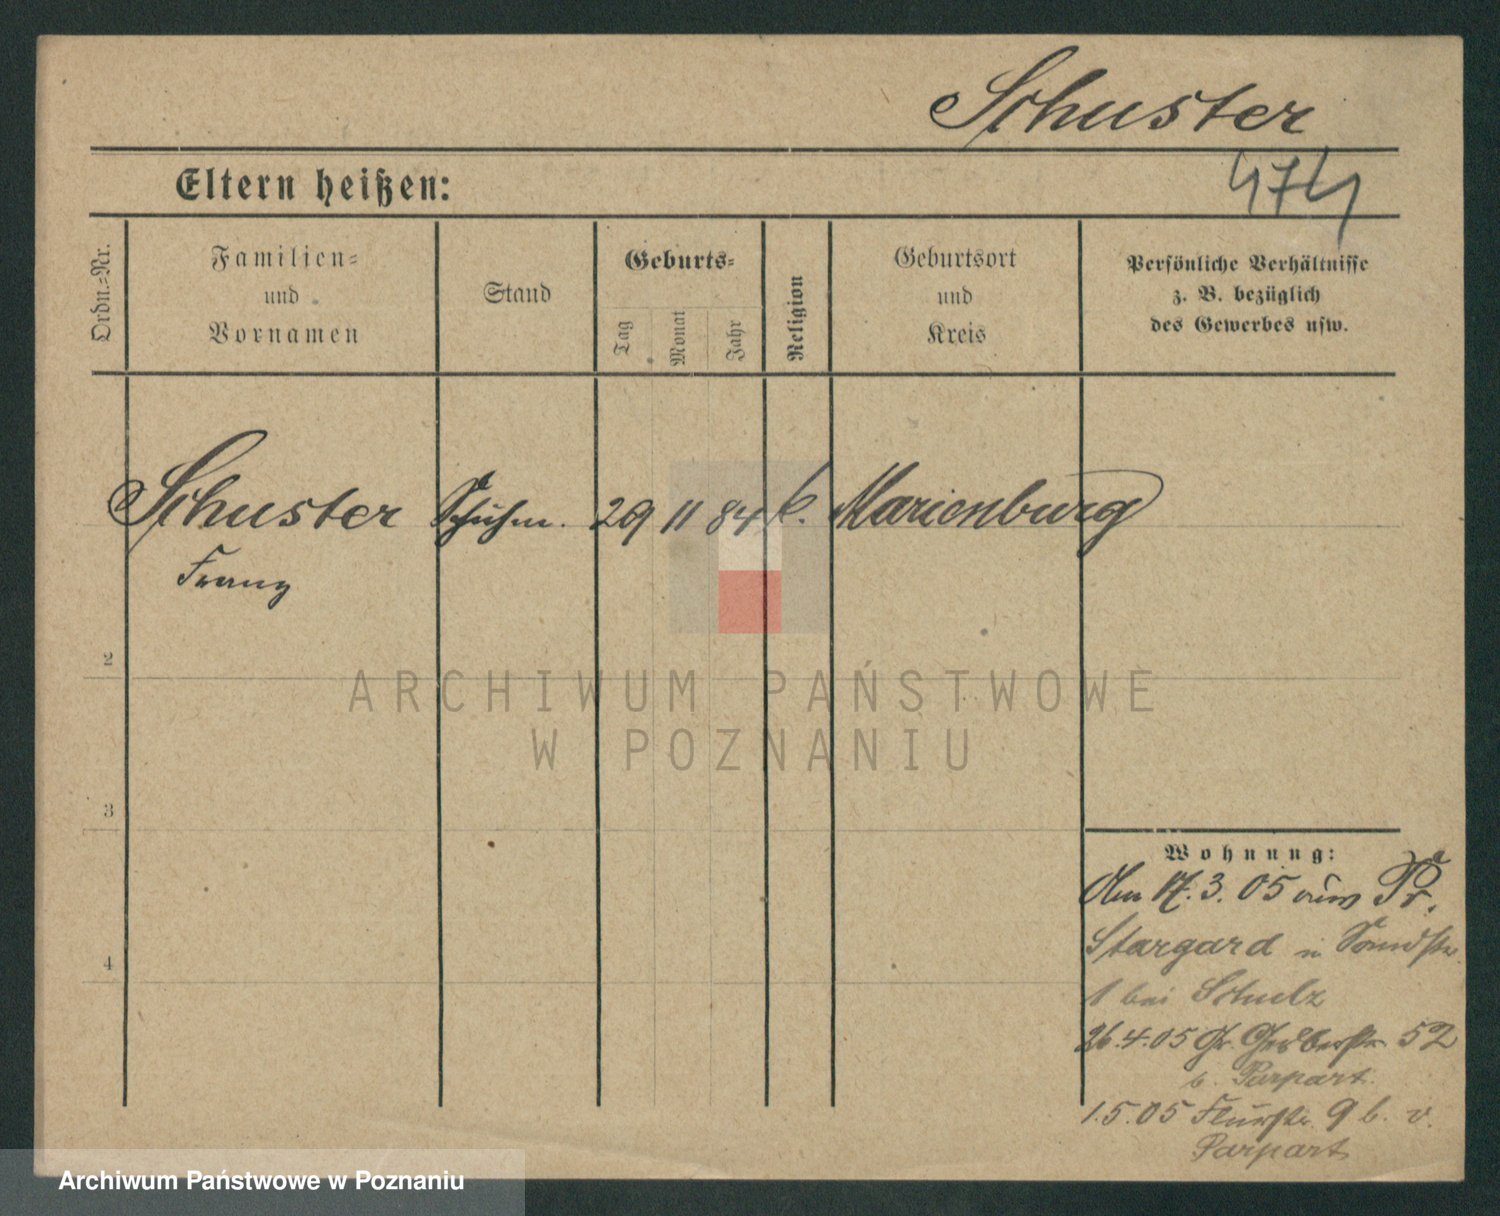 Schuster
Eltern heißen:
474
Ordn.-Nr.
Familien-
und
Vornamen
Stand
Geburts-
Tag
Monat
Jahr
Religion
Geburtsort
und
Kreis
Persönliche Verhältnisse
z. B. bezüglich
des Gewerbes usw.
Schuster Schuhm. 29 11 84 k. Marienburg
Franz
2
3
4
ARCHIWUM PAŃSTWOWE
W POZNANIU
Wohnung:
Am 17.3.05 aus Pr.
Stargard in Sandstr.
1 bei Schulz
26.4.05 Gr. Gerberstr. 52
b. Parpart.
1.5.05 Flurstr. 9 b. v.
Parpart
Archiwum Państwowe w Poznaniu